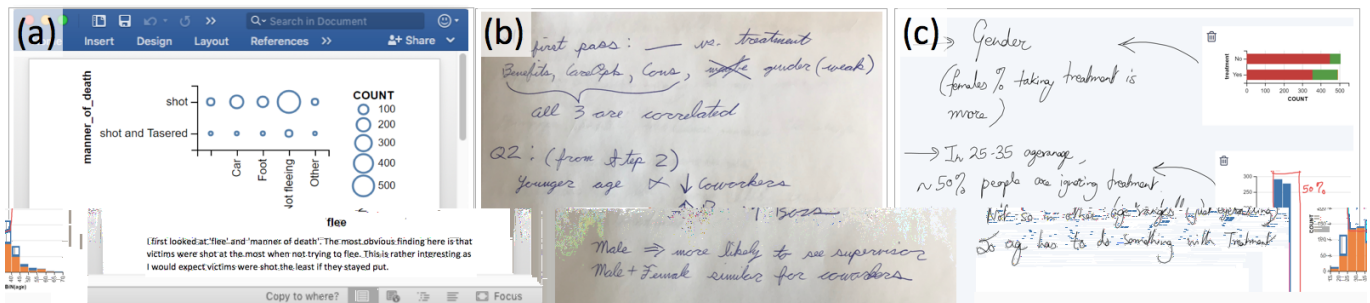 (a)
Search in Document
Insert Design Layout References Share
manner_of_death
shot
shot and Tasered
Car
Foot
Not fleeing
Other
COUNT
100
200
300
400
500
flee
I first looked at 'flee' and 'manner of death'. The most obvious finding here is that
victims were shot at the most when not trying to flee. This is rather interesting as
I would expect victims were shot the least if they stayed put.
BIN(age)
Copy to where? Focus
(b)
first pass: — vs. treatment
Benefits, CareOpts, Cons, gender (weak)
all 3 are correlated
Q2: (from Step 2)
Younger age ↓ coworkers
Male ⇒ more likely to see supervisor
Male + Female similar for coworkers
(c)
→ Gender
(females % taking treatment is
more)
treatment
No
Yes
0 100 200 300 400 500
COUNT
→ In 25-35 age range,
~50% people are ignoring treatment.
Not so in other age "ranges" (just operating)
So age has to do something with Treatment
50%
300
250
200
150
100
50
0
COUNT